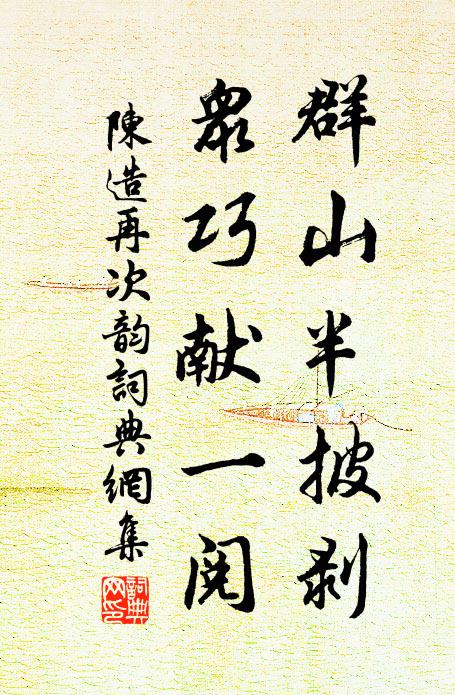 群山半披剥
眾巧献一閱
陳造再次韵詞典網集
詞典网印